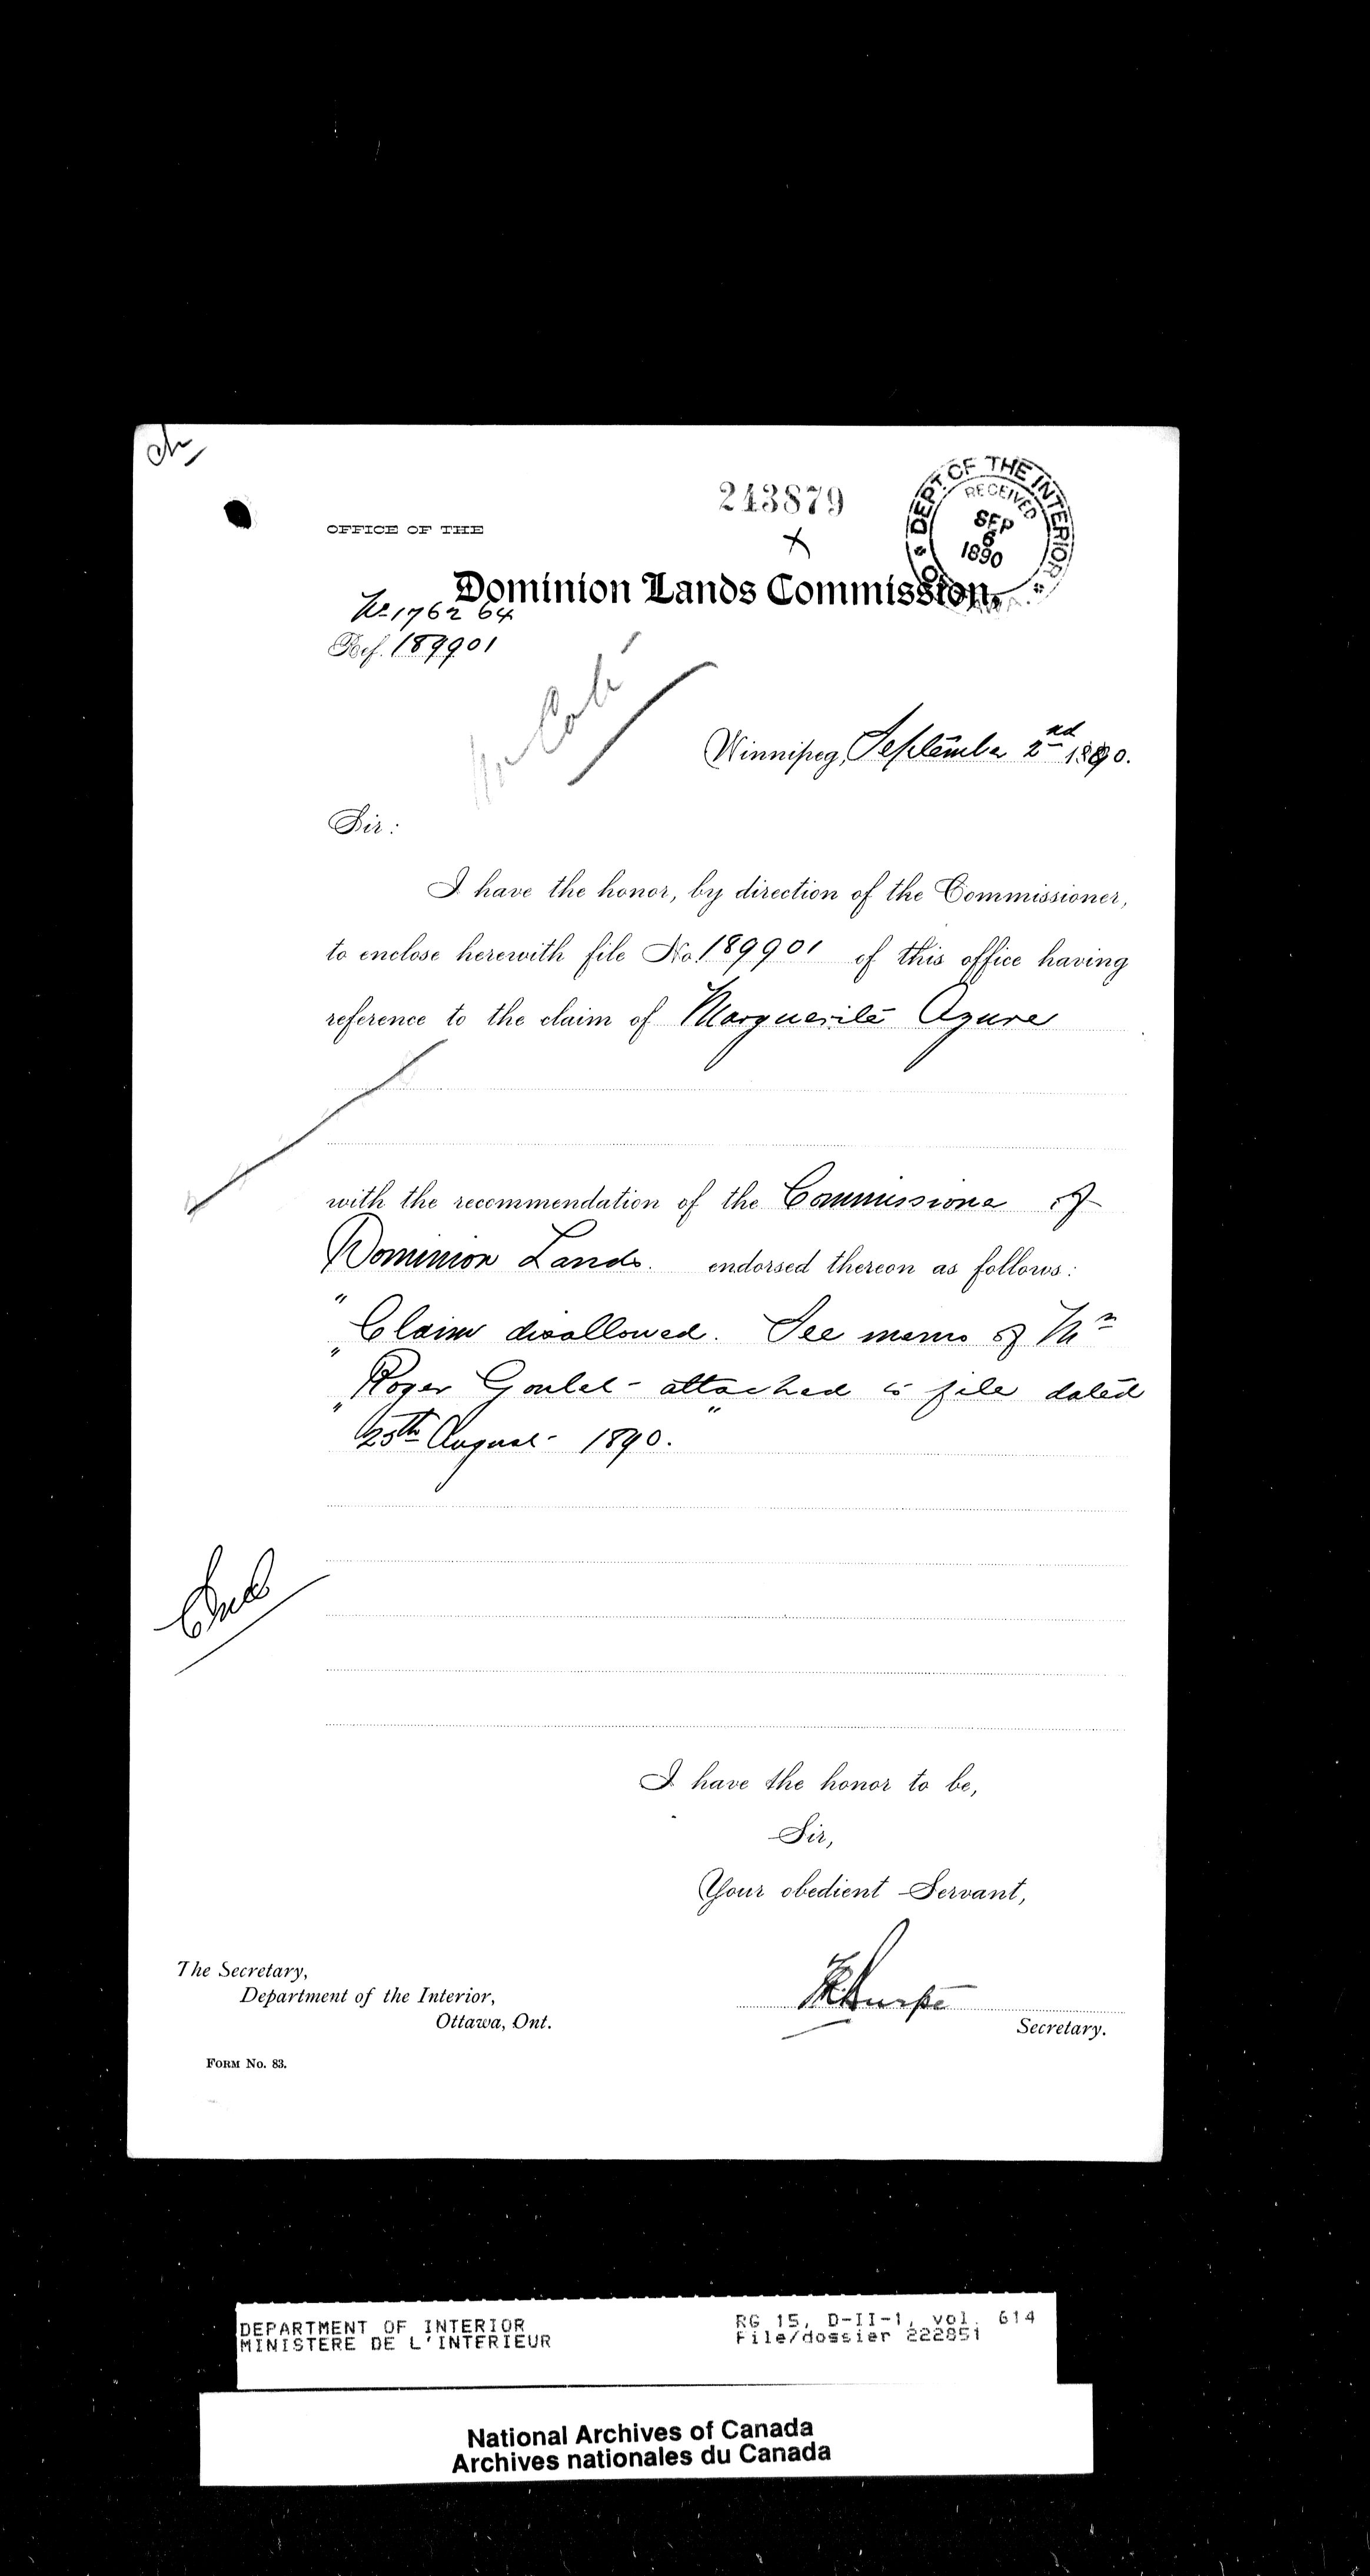 243879
DEPT. OF THE INTERIOR
RECEIVED
SEP
6
1890
OFFICE OF THE
Dominion Lands Commission,
No 176264
Ref. 189901
Winnipeg, September 2nd 1890.
Sir:
I have the honor, by direction of the Commissioner,
to enclose herewith file No. 189901 of this office having
reference to the claim of Marguerite Azure
with the recommendation of the Commissioner of
Dominion Lands. endorsed thereon as follows:
"Claim disallowed. See memo of Mr
"Roger Goulet attached to file dated
"25th August 1890."
Encl
I have the honor to be,
Sir,
Your obedient Servant,
The Secretary,
Department of the Interior,
Ottawa, Ont.
Secretary.
FORM No. 83.
DEPARTMENT OF INTERIOR
MINISTERE DE L'INTERIEUR
RG 15, D-II-1, vol. 614
File/dossier 222851
National Archives of Canada
Archives nationales du Canada